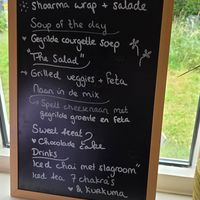 shoarma wrap + salade
Soup of the day
Gegrilde courgette soep
"The Salad"
→ Grilled veggies + Feta
Naan in de mix
↪ Spelt cheesenaan met
gegrilde groente en feta
Sweet treat?
♥ Chocolade Cake
Drinks
Iced chai met slagroom"
Iced tea 7 chakra's
♥ & Kurkuma